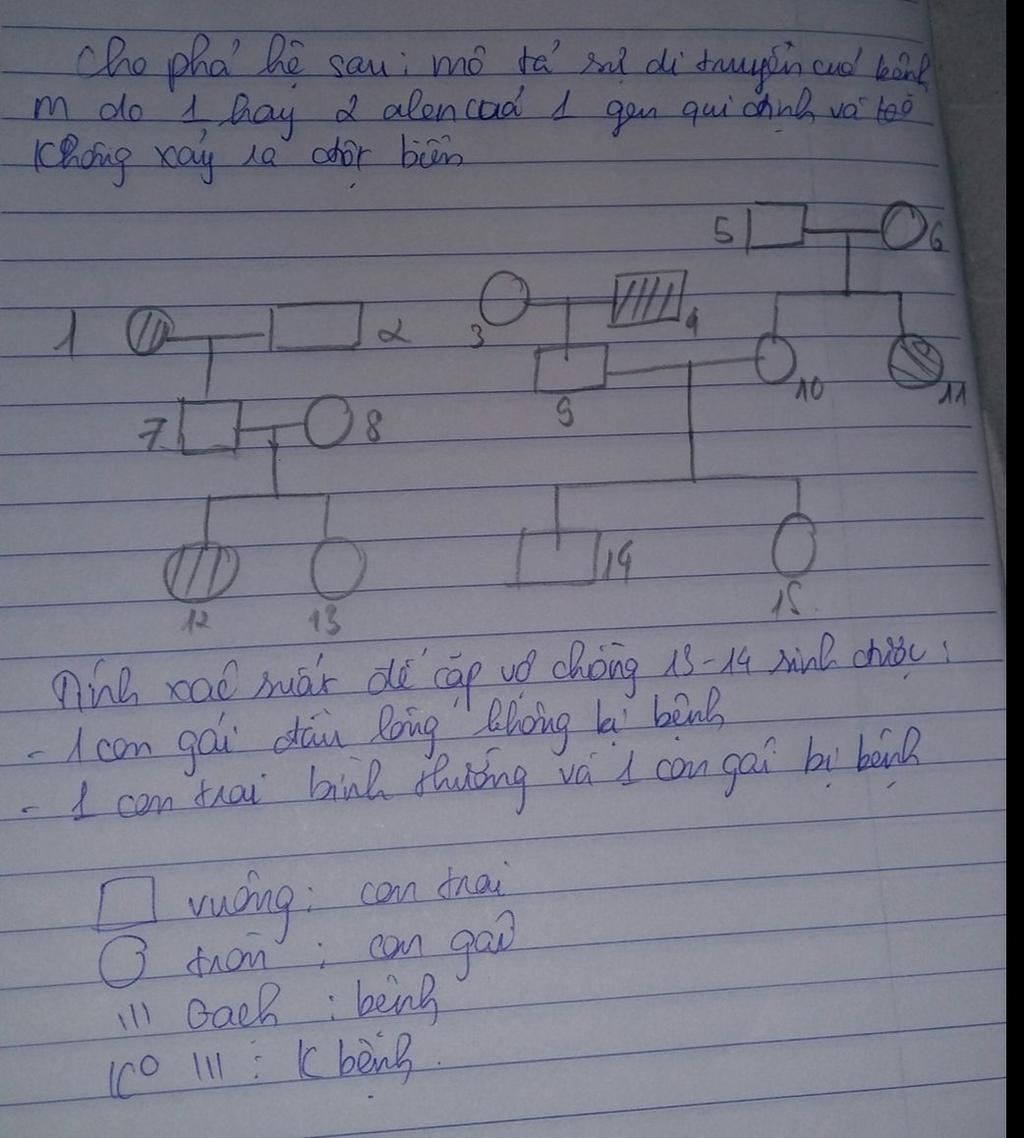 Cho phả hệ sau: mô tả sự di truyền của bệnh
M do 1 hay 2 alen của 1 gen qui định và
không xảy ra đột biến
5 6
1 2 3 4
10 11
7 8 9
12 13 14 15
Tính xác suất để cặp vợ chồng 13-14 sinh được:
- 1 con gái đầu lòng không bị bệnh
- 1 con trai bình thường và 1 con gái bị bệnh
vuông: con trai
tròn: con gái
III Gạch: bệnh
Ko III: K bệnh.